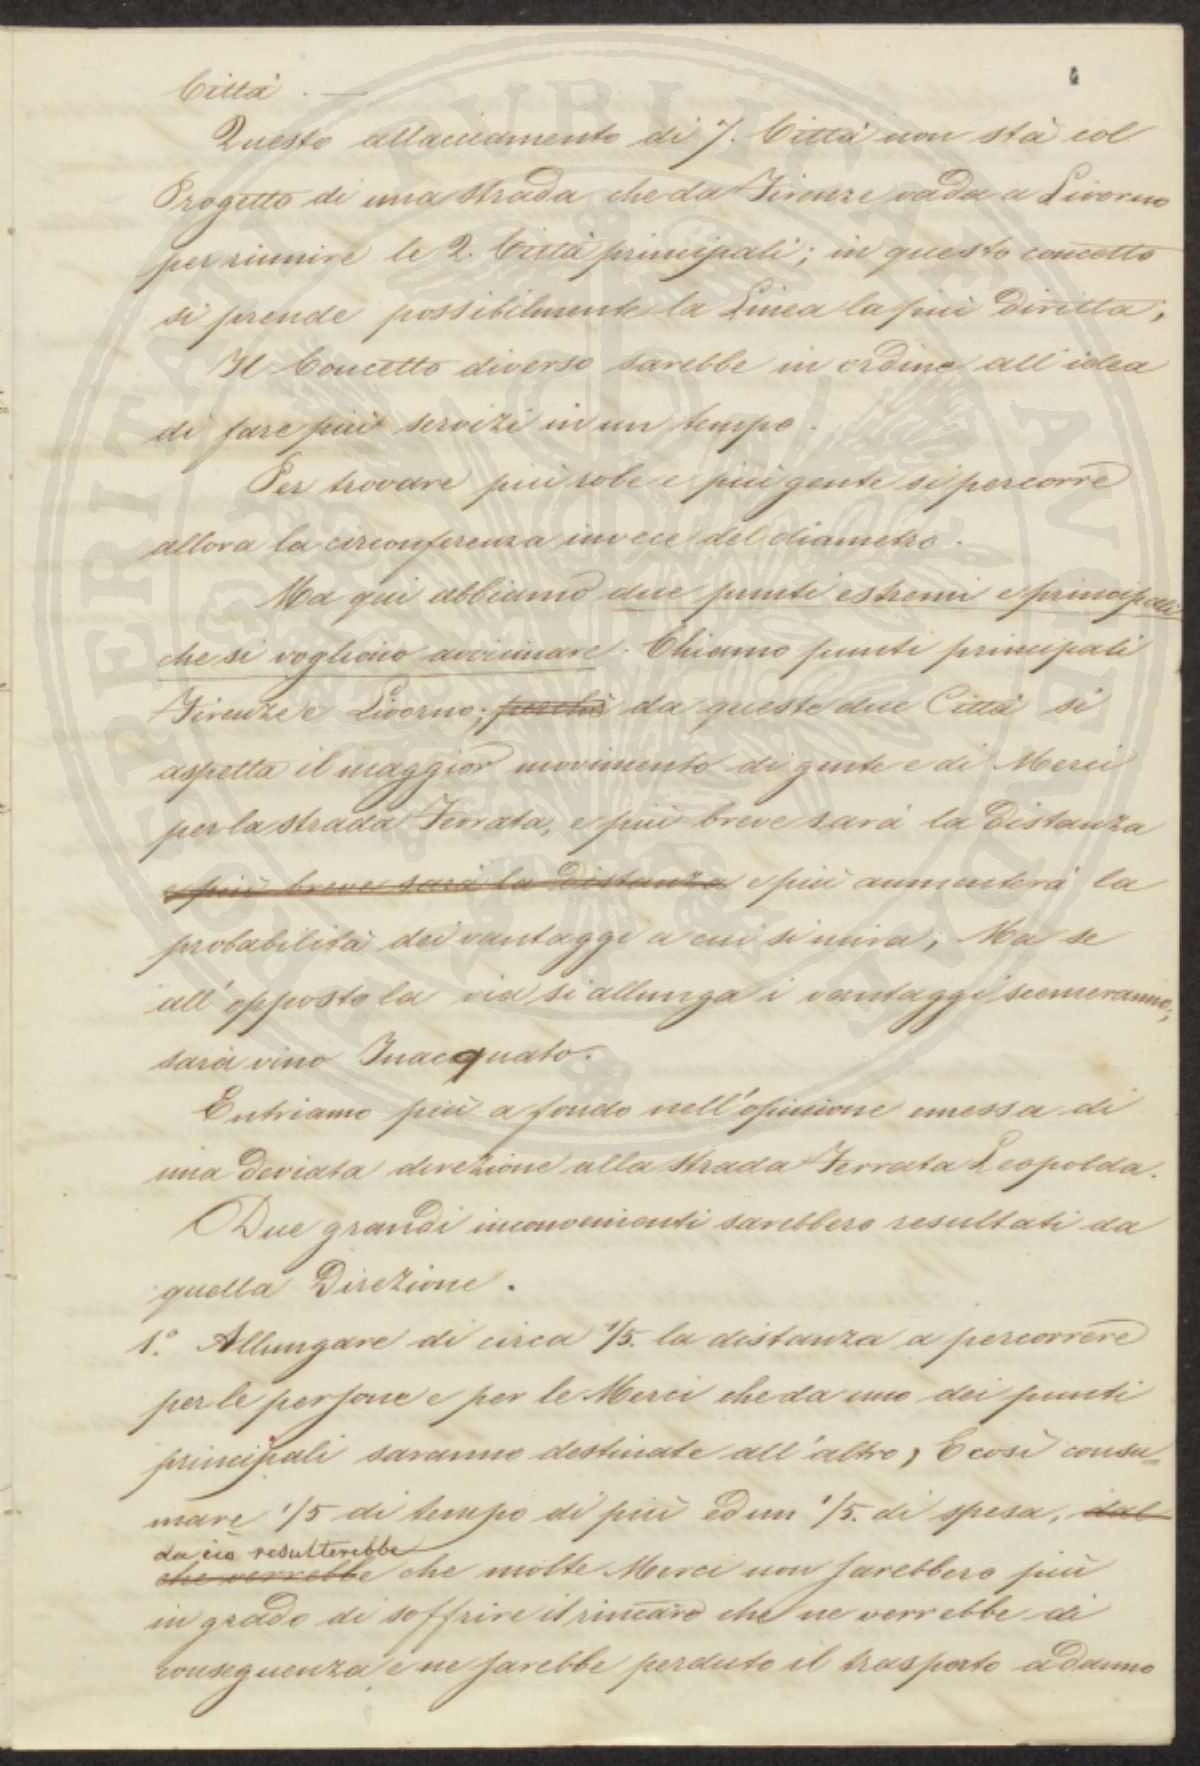 Città . —
Questo allacciamento di 7. Città non stà col
Progetto di una strada che da Firenze vada a Livorno
per riunire le 2. Città principali; in questo concetto
si prende possibilmente la Linea la più Diritta;
Il Concetto diverso sarebbe in ordine all'idea
di fare più servizi in un tempo.
Per trovare più robe e più gente si percorre
allora la circonferenza invece del diametro.
Ma qui abbiamo due punti estremi e principali
che si vogliono avvicinare. Chiamo punti principali
Firenze e Livorno; perchè da queste due Città si
aspetta il maggior movimento di gente e di Merci
per la strada Ferrata, e più breve sarà la Distanza
e più breve sarà la Distanza e più aumenterà la
probabilità dei vantaggi a cui si mira; Ma se
all'opposto la via si allunga i vantaggi scemeranno;
sarà vino Inacquato.
Entriamo più a fondo nell'opinione emessa di
una Deviata direzione alla strada Ferrata Leopolda.
Due grandi inconvenienti sarebbero resultati da
quella Direzione.
1.° Allungare di circa 1/5. la distanza a percorrere
per le persone e per le Merci che da uno dei punti
principali saranno destinate all'altro, E così consu=
mare 1/5 di tempo di più ed un 1/5. di spesa, dal
da ciò resulterebbe
che verrebbe che molte Merci non sarebbero più
in grado di soffrire il rincaro che ne verrebbe di
conseguenza e ne sarebbe perduto il trasporto a Danno